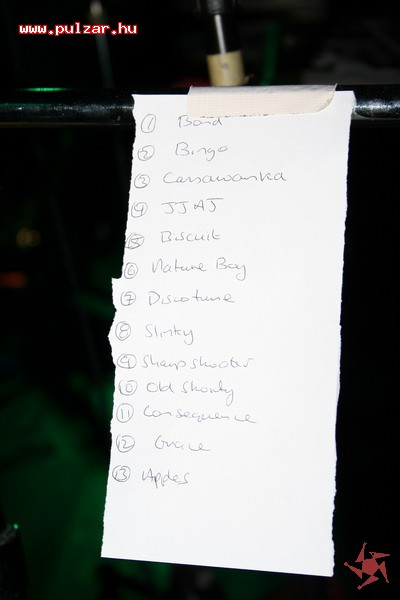 www.pulzar.hu
1 Band
2 Bingo
3
4 JJAJ
5 Biscuit
6 Nature Boy
7 Discotune
8 Slinky
9 Sharpshooter
10 Old Shorty
11 Consequence
12 Grace
13 Apples